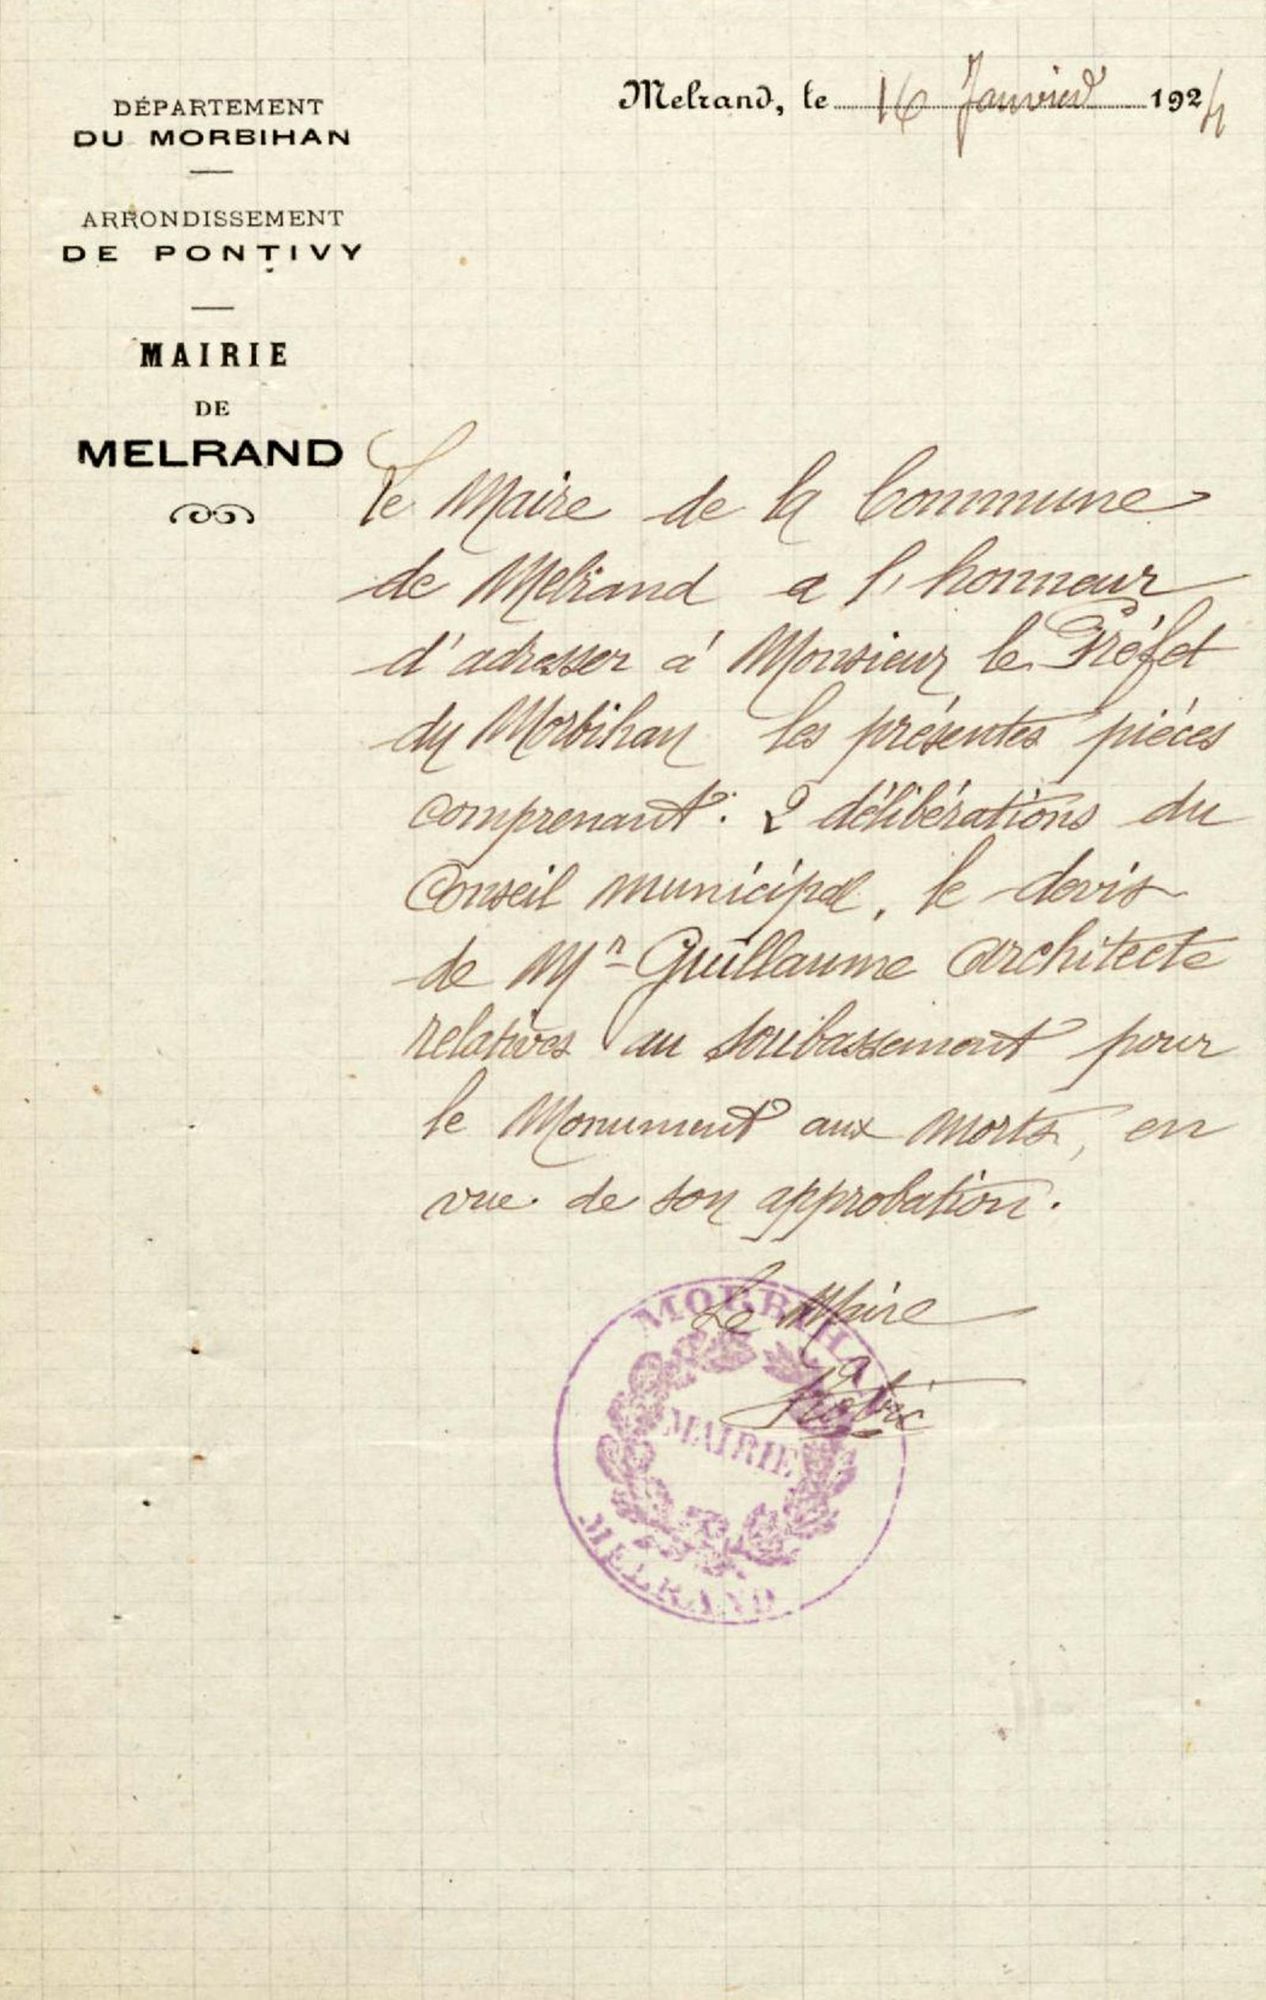 DÉPARTEMENT
DU MORBIHAN
ARRONDISSEMENT
DE PONTIVY
MAIRIE
DE
MELRAND
Melrand, le 16 Janvier 1924
Le Maire de la Commune
de Melrand a l'honneur
d'adresser à Monsieur le Préfet
du Morbihan les présentes pièces
comprenant : 2 délibérations du
Conseil municipal, le devis
de Mr Guillaume architecte
relatives au soubassement pour
le Monument aux morts, en
vue de son approbation.
Le Maire
MORBIHAN
MAIRIE
MELRAND